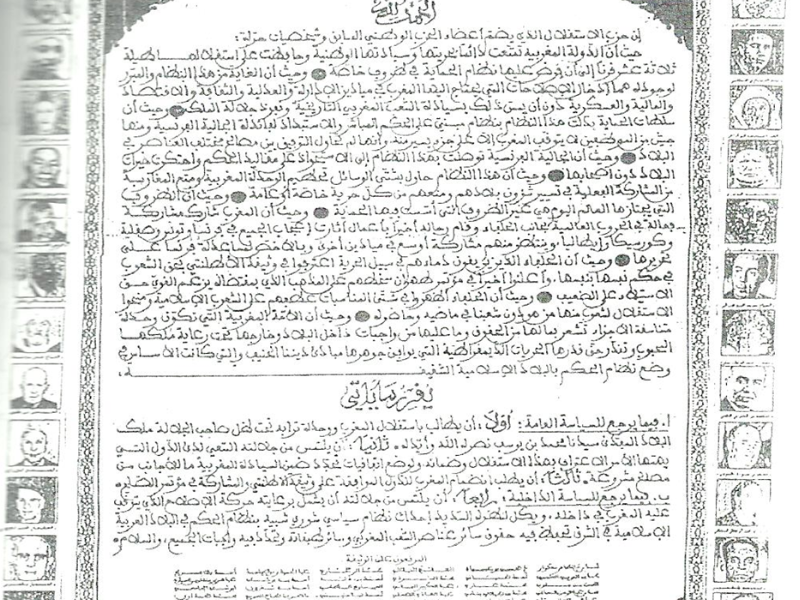 الحمد لله
إن حزب الاستقلال الذي يضم أعضاء الحزب الوطني السابق وشخصيات حرة:
حيث أن الدولة المغربية تمتعت دائما بحريتها وسيادتها الوطنية وحافظت على استقلالها طيلة
ثلاثة عشر قرنا إلى أن فرض عليها نظام الحماية في ظروف خاصة وحيث أن الغاية من هذا النظام والمبرر
لوجوده هما إدخال الإصلاحات التي يحتاج إليها المغرب في ميادين الإدارة والعدلية والثقافة والاقتصاد
والمالية والعسكرية دون أن يمس ذلك بسيادة الشعب المغربي التاريخية ونفوذ جلالة الملك وحيث أن
سلطات الحماية بدلت هذا النظام بنظام مبني على الحكم المباشر والاستبداد لفائدة الجالية الفرنسية ومنها
جيش من الموظفين لا يتوقف المغرب إلا على جزء يسير منه وأنها لم تحاول التوفيق بين مصالح مختلف العناصر في
البلاد وحيث أن الجالية الفرنسية توصلت بهذا النظام إلى الاستحواذ على مقاليد الحكم واحتكرت خيرات
البلاد دون أصحابها وحيث أن هذا النظام حاول بشتى الوسائل تحطيم الوحدة المغربية ومنع المغاربة
من المشاركة الفعلية في تسيير شؤون بلادهم ومنعهم من كل حرية خاصة أو عامة وحيث أن الظروف
التي يجتازها العالم اليوم هي غير الظروف التي أسست فيها الحماية وحيث أن المغرب شارك مشاركة
فعالة في الحروب العالمية بجانب الحلفاء وقام رجاله أخيرا بأعمال أثارت إعجاب الجميع في فرنسا وتونس وصقلية
وكورسيكا وإيطاليا وينتظر منهم مشاركة أوسع في ميادين أخرى وبالأخص لمساعدة فرنسا على
تحريرها وحيث أن الحلفاء الذين يريقون دماءهم في سبيل الحرية اعترفوا في وثيقة الأطلنتي بحق الشعوب
في حكم نفسها بنفسها وأعلنوا أخيرا في مؤتمر طهران سخطهم على المذهب الذي بمقتضاه يزعم القوي حق
الاستيلاء على الضعيف وحيث أن الحلفاء أظهروا في شتى المناسبات عطفهم على الشعوب الإسلامية ومنحوا
الاستقلال لشعوب منها من هو دون شعبنا في ماضيه وحاضره وحيث أن الأمة المغربية التي تكون وحدة
متناسقة الأجزاء تشعر بما لها من الحقوق وما عليها من واجبات داخل البلاد وخارجها تحت رعاية ملكها
المحبوب وتقدر حق قدرها الحريات الديمقراطية التي يوافق جوهرها مبادئ ديننا الحنيف والتي كانت الأساس في
وضع نظام الحكم بالبلاد الإسلامية الشقيقة
يقرر ما يأتي
أ. فيما يرجع للسياسة العامة: أولا: أن يطالب باستقلال المغرب ووحدة ترابه تحت ظل صاحب الجلالة ملك
البلاد المفدى سيدنا محمد بن يوسف نصره الله وأيده. ثانيا: أن يلتمس من جلالته السعي لدى الدول التي
يهمها الأمر الاعتراف بهذا الاستقلال وضمانه ولوضع اتفاقيات تحدد ضمن السيادة المغربية ما للأجانب من
مصالح مشروعة. ثالثا: أن يطلب انضمام المغرب للدول الموافقة على وثيقة الأطلنتي والمشاركة في مؤتمر الصلح.
ب. فيما يرجع للسياسة الداخلية: رابعا: أن يلتمس من جلالته أن يشمل برعايته حركة الإصلاح الذي يتوقف
عليه المغرب في داخله، ويكل لنظره السديد إحداث نظام سياسي شوري شبيه بنظام الحكم في البلاد العربية
الإسلامية في الشرق تحفظ فيه حقوق سائر عناصر الشعب المغربي وسائر طبقاته وتحدد فيه واجبات الجميع، والسلام.
الموقعون على الوثيقة